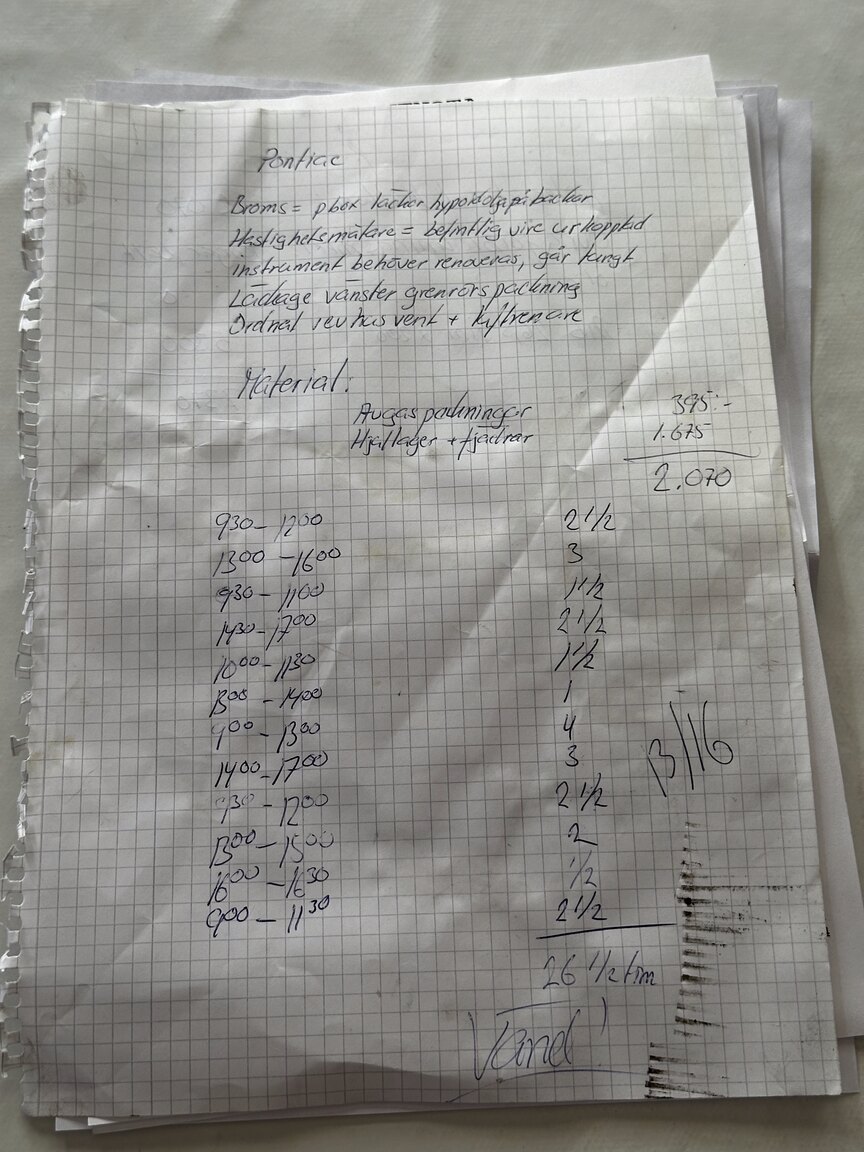 Pontiac
Broms = pbox läcker hypoidolja på backar
Hastighetsmätare = befintlig vire urkopplad
instrument behöver renoveras, går tungt
Läckage vänster grenrörspackning
Ordnat vevhusvent + luftrenare
Material:
Avgaspackningar 395:-
Hjullager + fjädrar 1.675
2.070
930 - 1200 2 1/2
1300 - 1600 3
930 - 1100 1 1/2
1430 - 1700 2 1/2
1000 - 1130 1 1/2
1300 - 1400 1
900 - 1300 4
1400 - 1700 3
930 - 1200 2 1/2
1300 - 1500 2
1600 - 1630 1/2
900 - 1130 2 1/2
13/16
26 1/2 tim
Vänd!